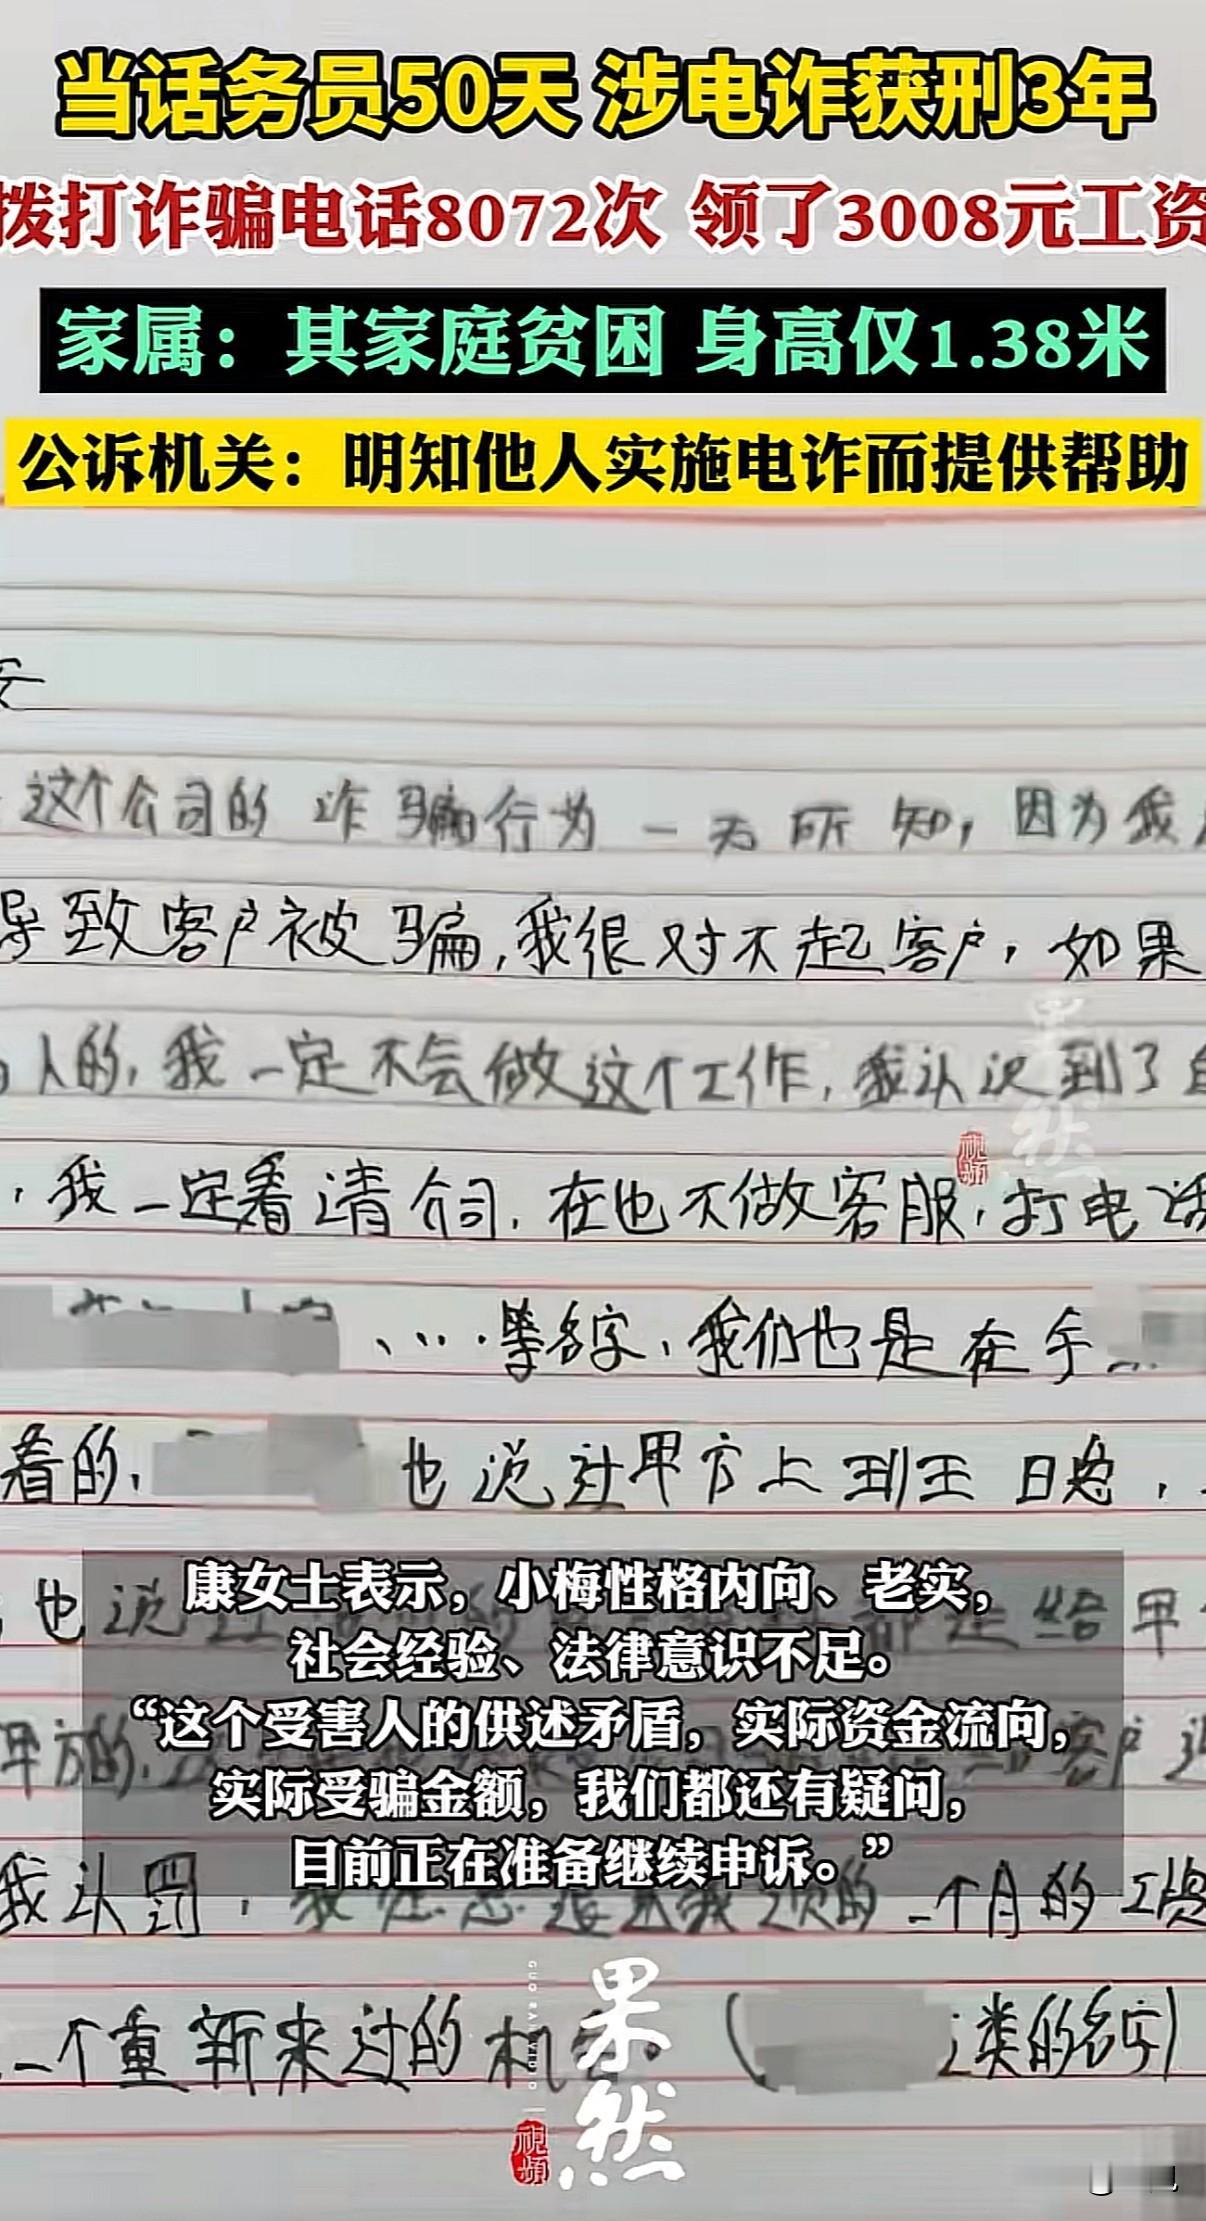 当话务员50天 涉电诈获刑3年
拨打诈骗电话8072次 领了3008元工资
家属：其家庭贫困 身高仅1.38米
公诉机关：明知他人实施电诈而提供帮助
这个公司的诈骗行为一无所知，因为我
导致客户被骗，我很对不起客户，如果
人的，我一定不会做这个工作，我认识到了自
，我一定看清公司，在也不做客服，打电话
、…等名字，我们也是在手
看的，也说过甲方上班
也说 给甲
甲方的， 客户
康女士表示，小梅性格内向、老实，
社会经验、法律意识不足。
“这个受害人的供述矛盾，实际资金流向，
实际受骗金额，我们都还有疑问，
目前正在准备继续申诉。”
我认罚，我 的一个月的工资
一个重新来过的机会。（ 类的名字）
果然
视频
果然
GUO RAN VIDEO
视频